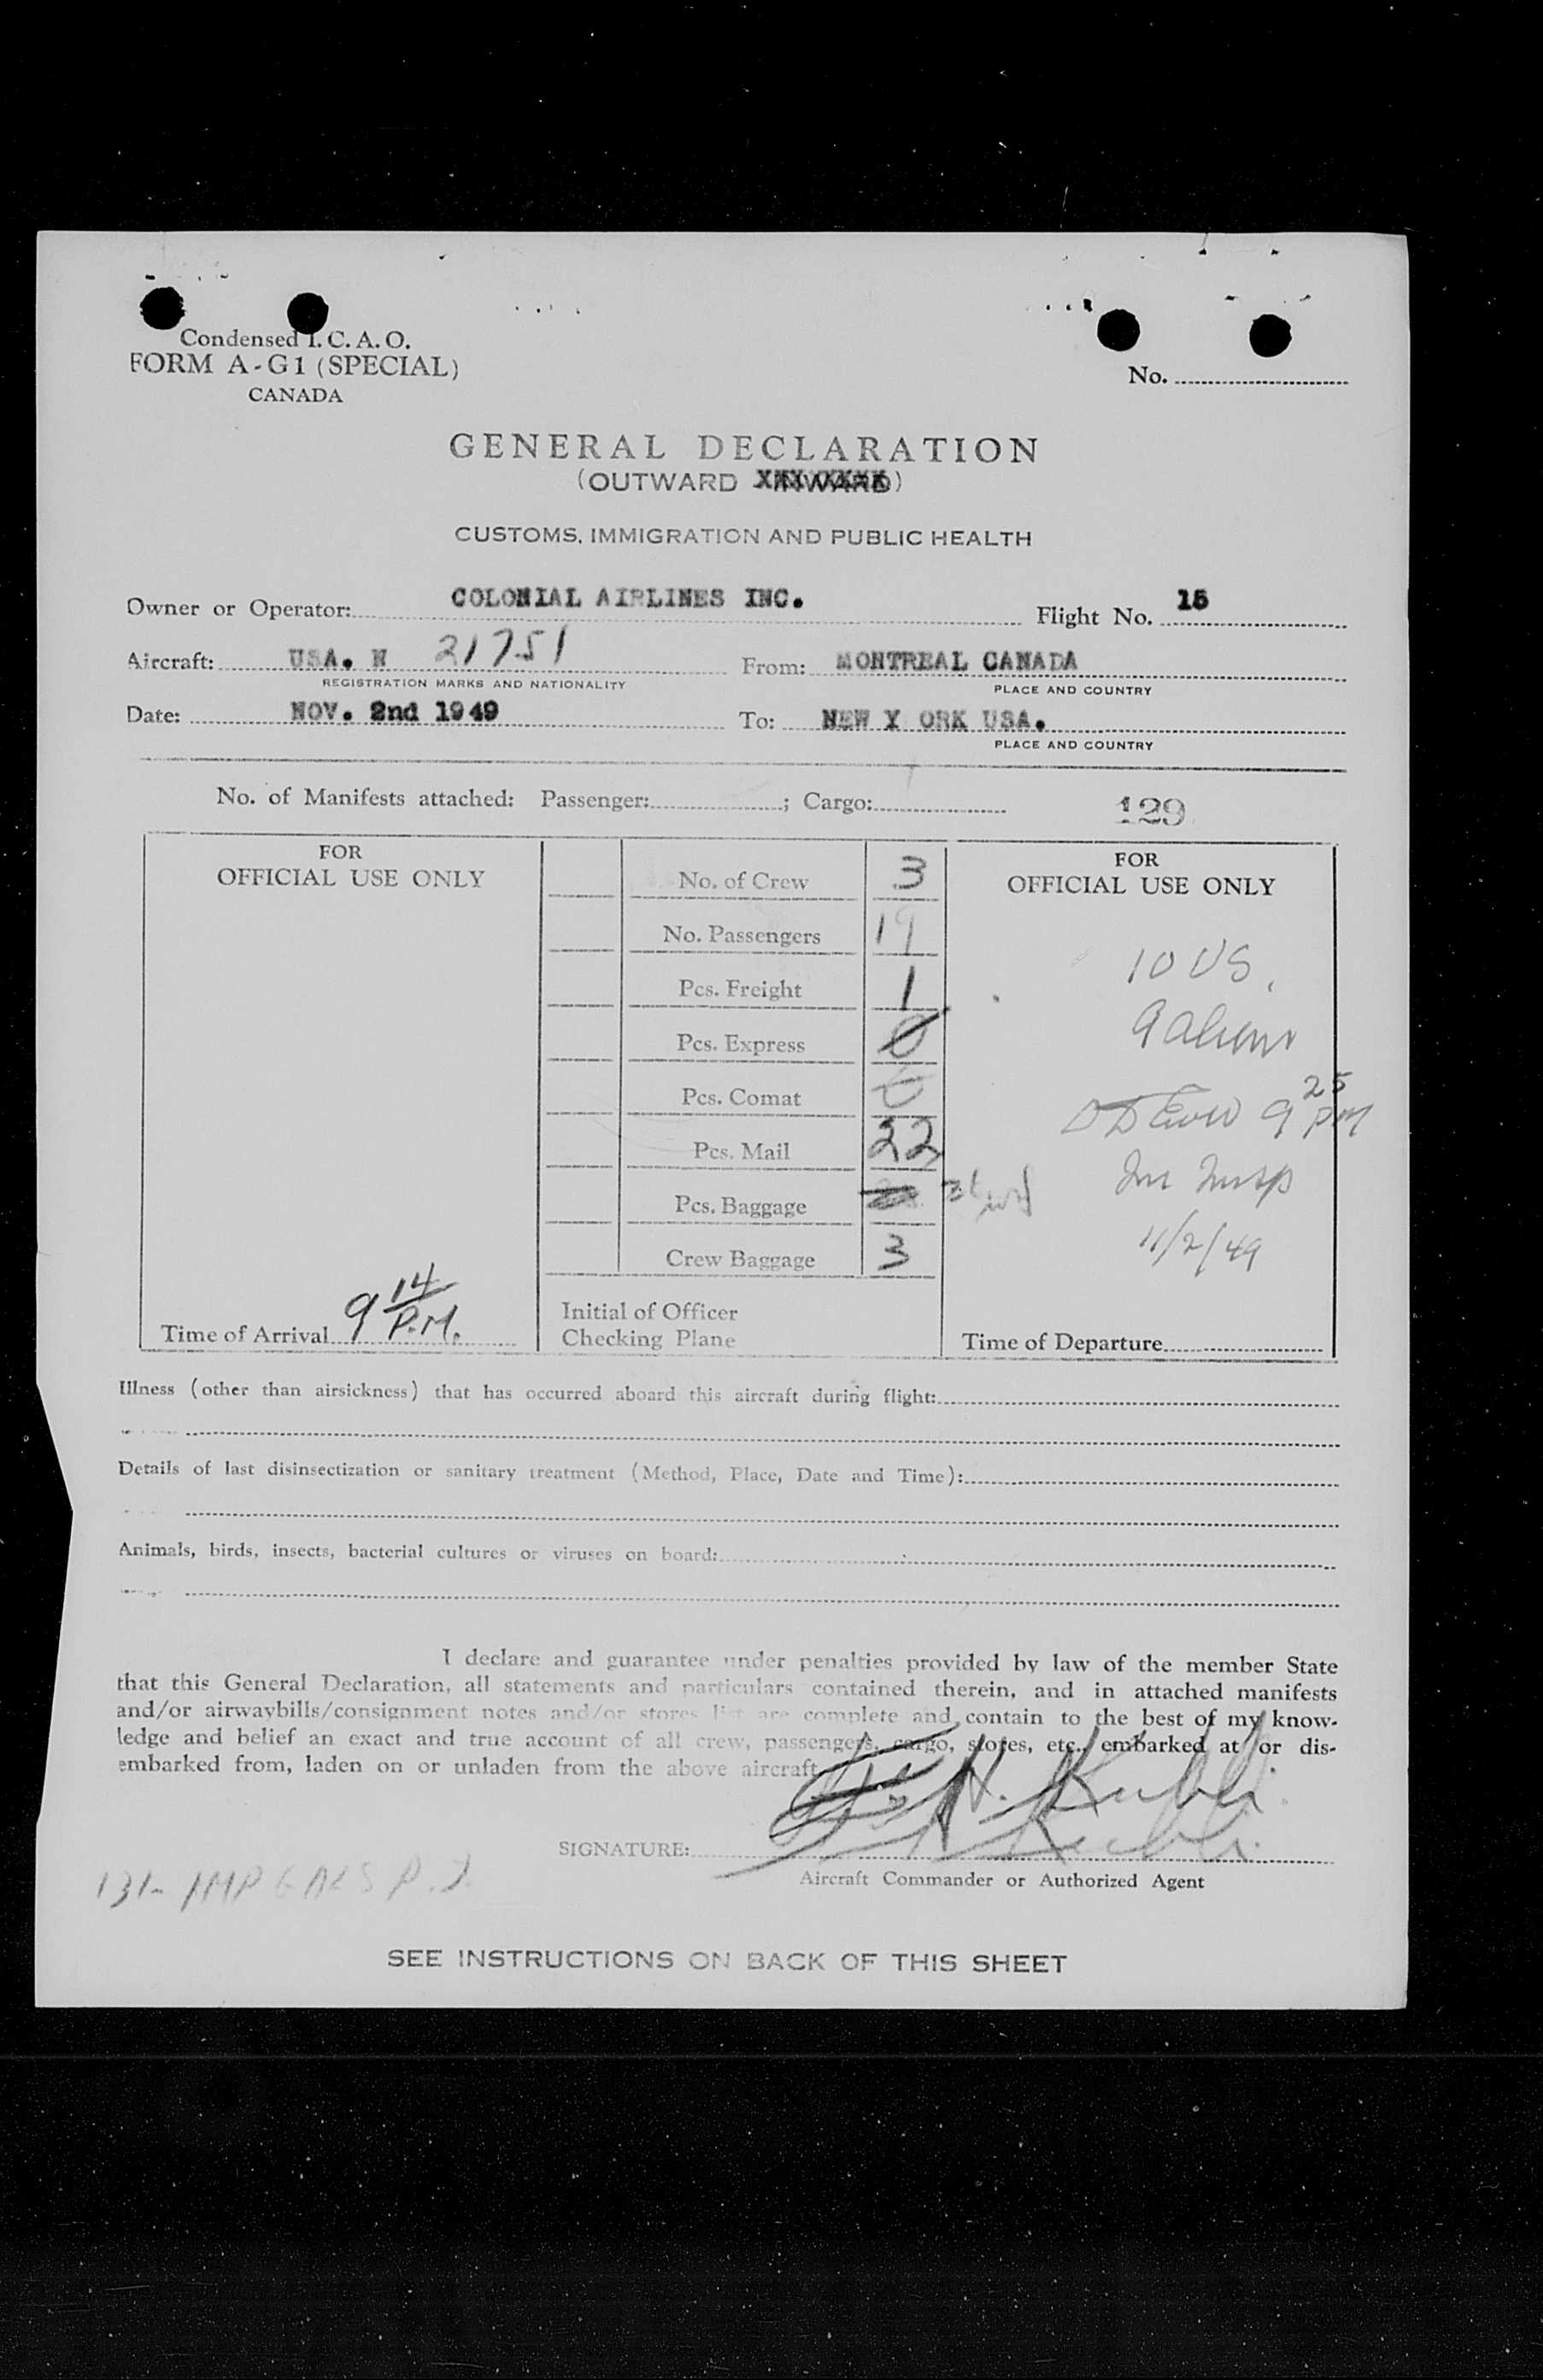 Condensed I. C. A. O.
FORM A-G1 (SPECIAL)
CANADA
No.
GENERAL DECLARATION
(OUTWARD INWARD)
CUSTOMS, IMMIGRATION AND PUBLIC HEALTH
Owner or Operator: COLONIAL AIRLINES INC. Flight No. 15
Aircraft: USA. N 21751 From: MONTREAL CANADA
REGISTRATION MARKS AND NATIONALITY PLACE AND COUNTRY
Date: NOV. 2nd 1949 To: NEW Y ORK USA.
PLACE AND COUNTRY
No. of Manifests attached: Passenger: ; Cargo: 129
FOR
OFFICIAL USE ONLY
No. of Crew 3
No. Passengers 19
Pcs. Freight 1
Pcs. Express 0
Pcs. Comat 0
Pcs. Mail 22
Pcs. Baggage
Crew Baggage 3
FOR
OFFICIAL USE ONLY
10 US,
9 aliens
9 25 PM
Insp
11/2/49
Time of Arrival 9 14 P.M.
Initial of Officer
Checking Plane
Time of Departure
Illness (other than airsickness) that has occurred aboard this aircraft during flight:
Details of last disinsectization or sanitary treatment (Method, Place, Date and Time):
Animals, birds, insects, bacterial cultures or viruses on board:
I declare and guarantee under penalties provided by law of the member State
that this General Declaration, all statements and particulars contained therein, and in attached manifests
and/or airwaybills/consignment notes and/or stores list are complete and contain to the best of my know-
ledge and belief an exact and true account of all crew, passengers, cargo, stores, etc., embarked at or dis-
embarked from, laden on or unladen from the above aircraft
SIGNATURE:
Aircraft Commander or Authorized Agent
131- IMP GALS
SEE INSTRUCTIONS ON BACK OF THIS SHEET